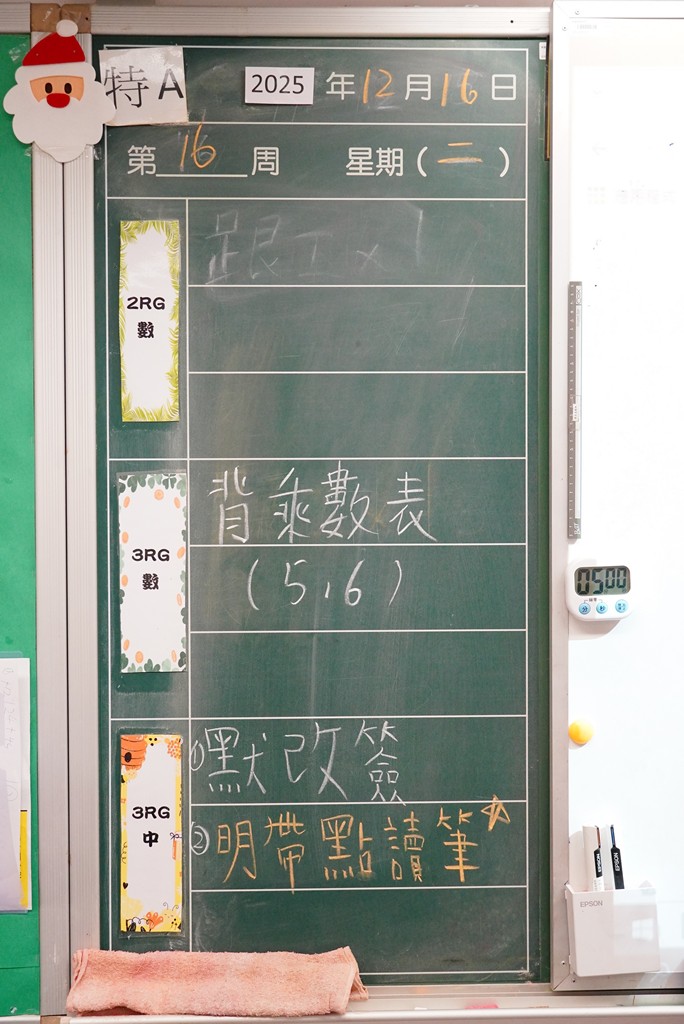 特A
2025 年 12 月 16 日
第 16 周 星期（二）
2RG
數
3RG
數
背乘數表
(5,6)
3RG
中
①默改簽
②明帶點讀筆☆
0500
EPSON
EPSON
EPSON